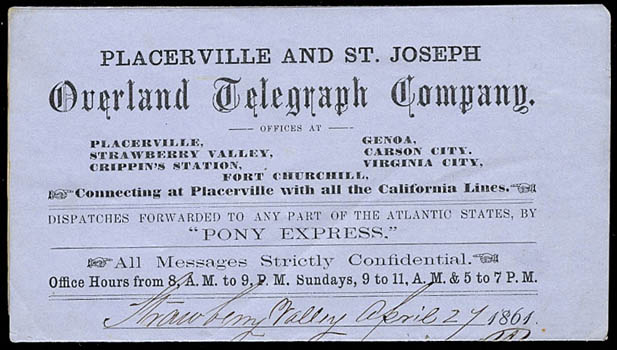 PLACERVILLE AND ST. JOSEPH
Overland Telegraph Company.
OFFICES AT
PLACERVILLE, GENOA,
STRAWBERRY VALLEY, CARSON CITY.
CRIPPIN'S STATION, VIRGINIA CITY,
FORT CHURCHILL,
Connecting at Placerville with all the California Lines.
DISPATCHES FORWARDED TO ANY PART OF THE ATLANTIC STATES, BY
"PONY EXPRESS."
All Messages Strictly Confidential.
Office Hours from 8, A. M. to 9, P. M. Sundays, 9 to 11, A. M. & 5 to 7 P. M.
Strawberry Valley April 27 1861.